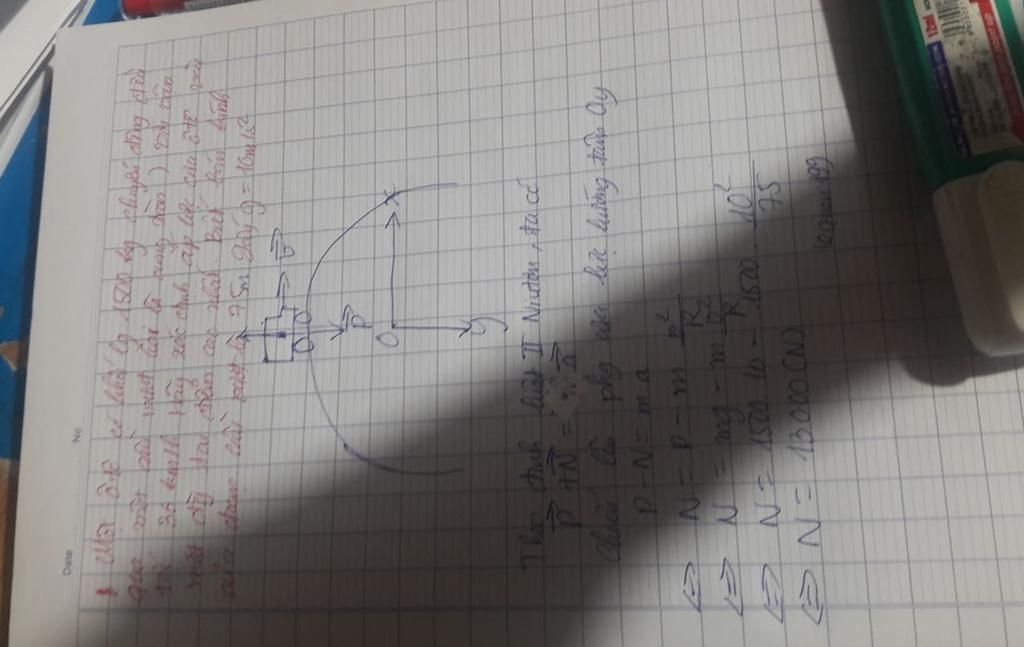 Date
No
1 Một ô tô có khối lg 1500 kg chuyển động đều
qua một cầu vượt (coi là cung tròn) với vận
tốc 36 km/h Hãy xác định áp lực của ôtô vào
mặt đg tại điểm cao nhất. Biết bán kính
cầu vượt là 75m Lấy g = 10m/s²
v
P
O
x
y
Theo định luật II Niuton, ta có
P + N = m.a
Chiếu lên trục Oy
P - N = m.a
<=> N = P - m
<=> N = mg - m
<=> N = 1500.10 - 1500. 10²/75
<=> N = 13000 (N)